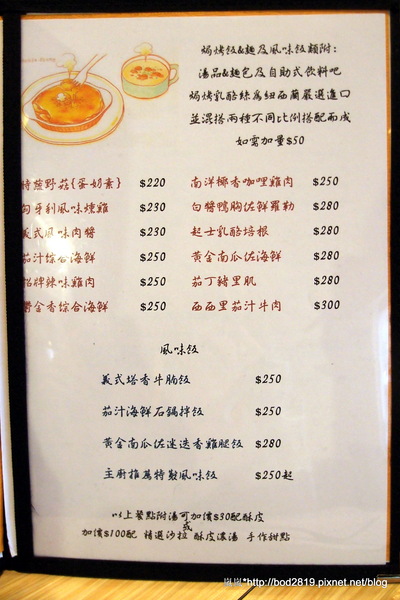 焗烤飯&麵及風味飯類附:
湯品&麵包及自助式飲料吧
焗烤乳酪絲為紐西蘭嚴選進口
並混搭兩種不同比例搭配而成
如需加量$50
特蔬野菇{蛋奶素} $220
南洋椰香咖哩雞肉 $250
匈牙利風味燻雞 $230
白醬鴨胸佐鮮羅勒 $280
義式風味肉醬 $230
起士乳酪培根 $280
茄汁綜合海鮮 $250
黃金南瓜佐海鮮 $280
招牌辣味雞肉 $250
茄丁豬里肌 $280
鬱金香綜合海鮮 $250
西西里茄汁牛肉 $300
風味飯
義式塔香牛腩飯 $250
茄汁海鮮石鍋拌飯 $250
黃金南瓜佐迷迭香雞腿飯 $280
主廚推薦特製風味飯 $250起
以上餐點附湯可加價$30配酥皮
或
加價$100配 精選沙拉 酥皮濃湯 手作甜點
http://bod2819.pixnet.net/blog